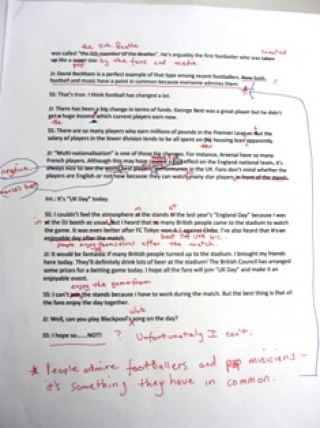 the 5th Beatle
was called "the 5th member of the Beatles". He's arguably the first footballer who was taken
treated
up like a super star by the fans and media.
JJ: David Beckham is a perfect example of that type among recent footballers. Now both
football and music have a point in common because everyone admires them.
SS: That's true. I think football has changed a lot.
JJ: There has been a big change in terms of funds. George Best was a great player but he didn't
get a huge income which current players earn now.
SS: There are so many players who earn millions of pounds in the Premier League. But the
salary of players in the lower division tends to be all spent on the housing loan apparently.
JJ: "Multi-nationalisation" is one of those big changes. For instance, Arsenal have so many
French players. Although this may have effect on the England national team, it's
negative
always nice to see the players performance in the UK. Fans don't mind whether the
world's best
players are English or not now because they can watch many star players in front of the stands.
Int.: It's "UK Day" today.
SS: I couldn't feel the atmosphere at the stands at the last year's "England Day" because I was
at the DJ booth as usual. But I heard that so many British people came to the stadium to watch
the game. It was even better after FC Tokyo won 4-1 against Chiba. I've also heard that it's an
enjoyable day after the match.
people enjoy themselves after the match.
JJ: It would be fantastic if many British people turned up to the stadium. I brought my friends
here today. They'll definitely drink lots of beer at the stadium! The British Council has arranged
some prizes for a betting game today. I hope all the fans will join "UK Day" and make it an
enjoyable event.
enjoy the game from
SS: I can't join the stands because I have to work during the match. But the best thing is that all
the fans enjoy the day together.
club
JJ: Well, can you play Blackpool's song on the day?
SS: I hope so......NOT! ? Unfortunately I can't.
* People admire footballers and musicians -
it's something they have in common.